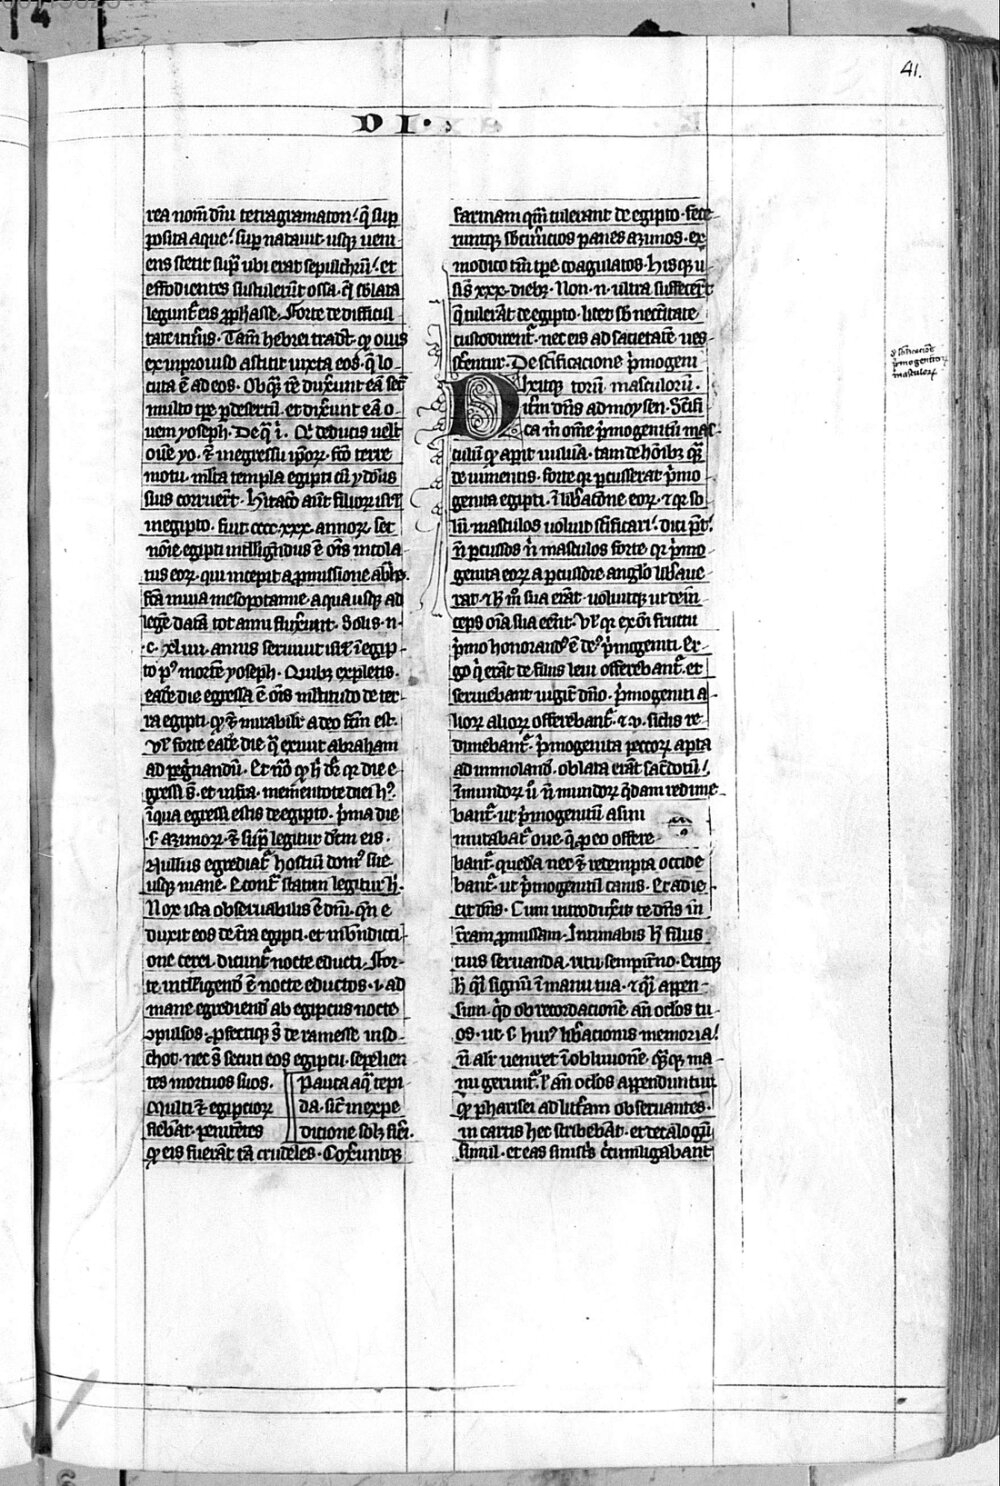 41.
DI·
rea nom̄ dn̄i tetragramaton! q̄ suꝑ
posita aque! suꝑ natauit usqꝫ ueni
ens stetit sup̄ ubi erat sepulchrū! et
effodientes sustulerūt ossa· q̄ sb̄lata
legunt᷑ eis ꝓphasse· Forte de difficul
tate itīn̄is· Tam̄ hebrei tradt̄ qꝫ ouis
ex inprouiso astitit iuxta eos· q̄ lo
cuta ē ad eos· Ob q̄ rē dux̄unt eā sec̄
multo tꝑe ꝑ desertū· et dix̄unt eā o
uem yoseph· De q̄ ī· Qͥ deducis uelt̄
ouē yo· ⁊ in egressu ip̄oꝝ· fc̄o terre
motu· mlta templa egipti cū ydolis
suis corruer̄t· Hītac̄o aut̄ filioꝝ isrl̄
in egipto· fuit cccc·xxx· annoꝝ· sec̄
nōīe egipti intelligēdus ē oīs incola
tus eoꝝ· qui incepit a ꝓmissione abr̄he·
fc̄a in uia mesopotamie· a qua usqꝫ ad
legē datā tot anni fluxerūt· Solis· n̄·
·c· xliiii· annis seruiuit isrl̄ ī egip
to pꝰ mortē yoseph· Quibꝫ expletis·
eadē die egressa ē oīs multitudo de ter
ra egipti· qꝫ ⁊ mirabilit᷑ a deo fc̄m est·
Vl̄ forte eadē die· qͣ exiuit abraham
ad peg̊nandū· Et nō qꝫ h̄ dr̄ qꝛ die e
gressi s̄· et infra· mementote diei hꝰ·
ī qua egressi estis de egipto· p̄ma die
·s· azimoꝝ· ⁊ sup̄ legitur dc̄m eis·
Nullus egrediat᷑ hostiū domꝰ sue
usqꝫ mane· Econt̄ statim legitur h̄·
Nox ista obseruabilis ē dn̄i· qn̄ e
duxit eos de tr̄a egipti· et in bn̄dicti
one cerei· dicunt᷑ nocte educti· For
te intelligēd ē nocte eductos· i· ad
mane egrediend ab egipciis nocte
ꝯpulsos· ꝓfectiqꝫ s̄ de ramesse in so
chot· nec s̄ secuti eos egiptii· sepelien
tes mortuos suos·
Multi ⁊ egiptioꝝ
flebāt· penitētes
qꝫ eis fuerāt tā crudeles· Cox̄untqꝫ
Pausta aqͣ tepi
da· sic̄ in expe
ditione solꝫ fieri·
farinam qͣm tulerant de egipto· fece
runtqꝫ sb̄cin̄icios panes azimos· ex
modico tm̄ tꝑe coagulatos· Hisqꝫ u
si s̄ xxx· diebꝫ· Non· n̄· ultra suffecer̄t
q̄ tulerāt de egipto· licet sb̄ necc̄itate
custodirent᷑· nec eis ad sacietatē ues
scerentur· De sc̄ificacione p̄mogeni
toꝝ masculoꝝ·
Dixitqꝫ
it̄m dn̄s ad moysen· Sc̄ifi
ca m̄ om̄e p̄mogenitū mas
culinū qꝫ aperit uuluā· tam de hōībꝫ qͣm
de iumentis· forte qꝛ ꝑcusserat p̄mo
genita egipti· ī lib̄acōne eoꝝ· ⁊ qꝛ so
lū masculos uoluit sc̄ificari· dici pt̄·
n̄ ꝑcussos n̄ masculos· forte qꝛ p̄mo
genita eoꝝ a ꝑcussōre anglo lib̄aue
rat· ⁊ h̄ mͦ sua erāt· uoluitqꝫ ut dein
ceps oīa sua eēnt· Vl̄ qꝛ ex oīn fructu
p̄mo honorandꝰ ē dꝰ· p̄mogeniti· Er
go qͥ erāt de filiis leui offerebant᷑· et
seruiebant iugit᷑ dn̄o· p̄mogeniti a
lioꝝ alioꝝ offerebant᷑· ⁊ v· siclis re
dimebant᷑· p̄mogenita peccoꝝ apta
ad immolandū· oblata erāt sac̄dotū!
īmundoꝝ ū· n̄ mundoꝝ qͣdam redime
bant᷑· ut p̄mogenitū asini
mutabat᷑ oue· q̄ ꝓ eo offere
bant᷑· queda nec ⁊ retempta occide
bant᷑· ut p̄mogenitū canis· Et adie
cit dn̄s· Cum introduxerit te dn̄s in
tr̄am ꝓmissam· Intimabis h̄ filiis
tuis seruanda ritu sempit̄no· Eritqꝫ
h̄ qͣsi signū ī manu tua· ⁊ qͣsi appen
sum· qͥd ob recordacionē· an̄ oc̄los tu
os· ut· s· huiꝰ lib̄acionis memoria!
n̄ alit̄ ueniret ī obliuionē· qͣsiqꝫ ma
nu gerunt᷑· ł an̄ oc̄los appenduntur
qꝫ pharisei ad litt̄am obseruantes·
in cartis hec scribebāt· et decalogū
simul· et eas sinist̄s cͥcumligabant
de sc̄ificacōe
p̄mogenitoꝝ
masculoꝝ